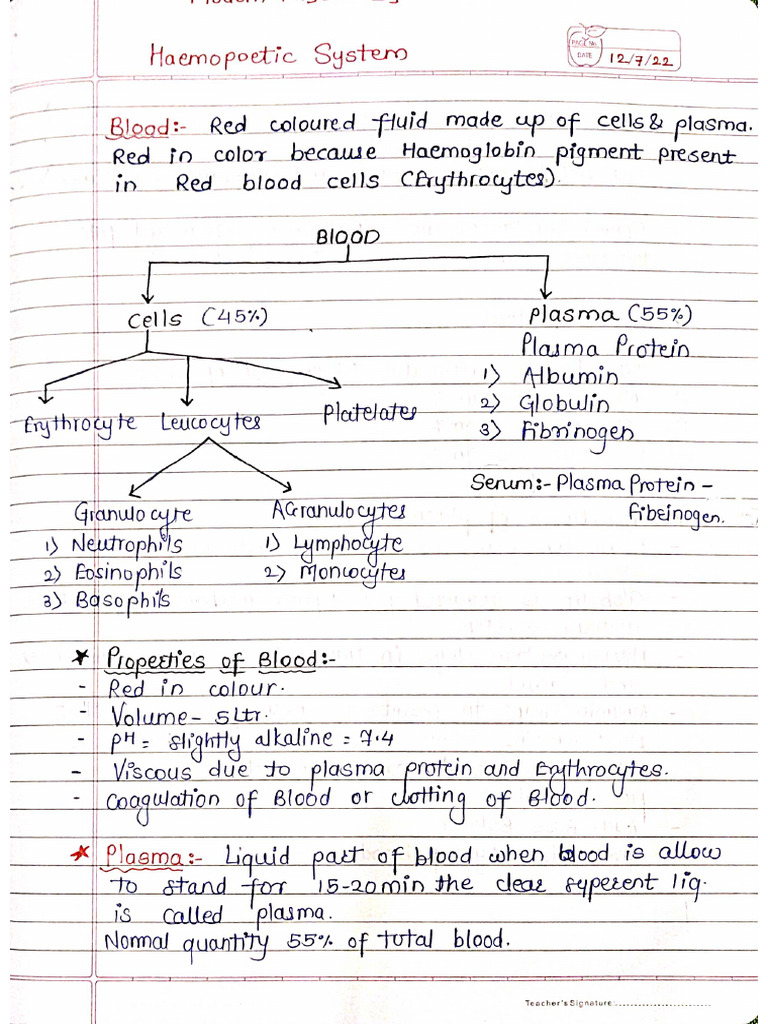 Haemopoetic System
PAGE No.
DATE 12/7/22
Blood:- Red coloured fluid made up of cells & plasma.
Red in color because Haemoglobin pigment present
in Red blood cells (Erythrocytes).
BLOOD
Cells (45%)
Plasma (55%)
Plasma Protein
1) Albumin
2) Globulin
3) Fibrinogen
Erythrocyte Leucocytes Platelates
Serum:- Plasma Protein -
Fibrinogen.
Granulocyte
1) Neutrophils
2) Eosinophils
3) Basophils
AGranulocytes
1) Lymphocyte
2) Monocytes
* Properties of Blood:-
- Red in colour.
- Volume - 5 Ltr.
- pH = slightly alkaline = 7.4
- Viscous due to plasma protein and Erythrocytes.
- Coagulation of Blood or clotting of Blood.
* Plasma:- Liquid part of blood when blood is allow
to stand for 15-20min the clear syperent liq.
is called plasma.
Normal quantity 55% of total blood.
Teacher's Signature: